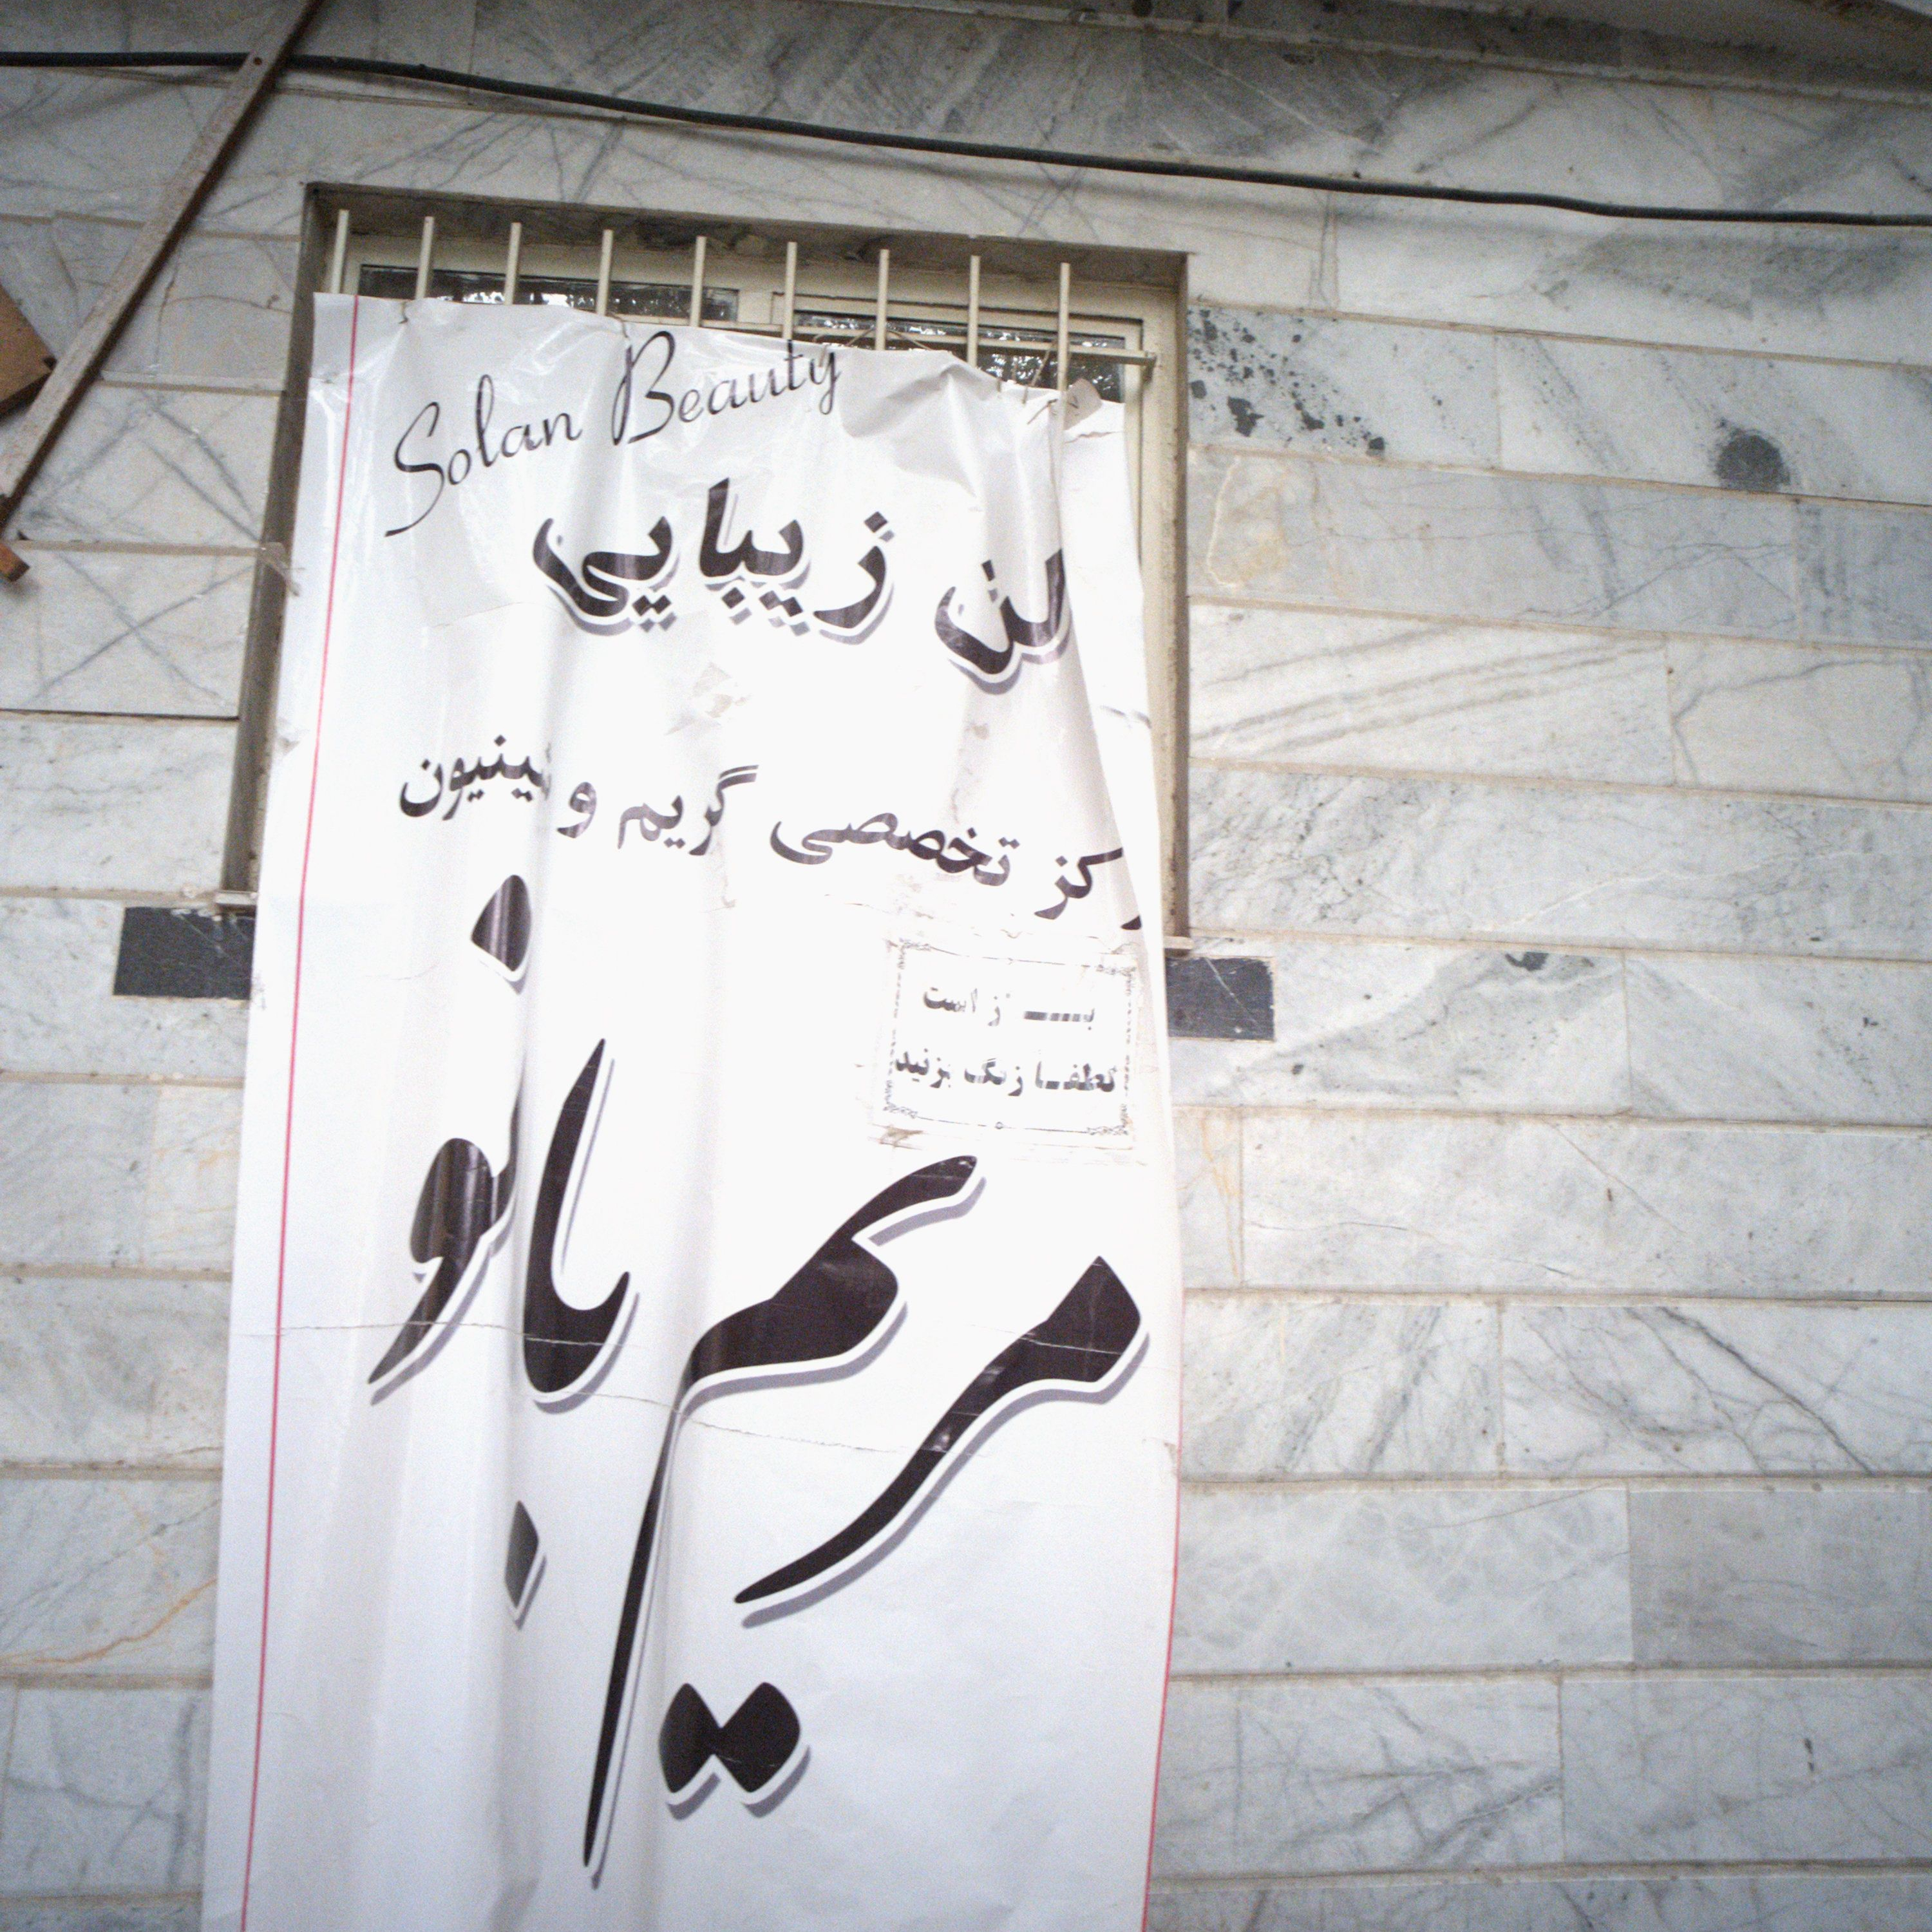 Solan Beauty
لن زیبایی
رکز تخصصی گریم و شینیون
بــــاز است
لطفــا زنگ بزنید
مریم بانو